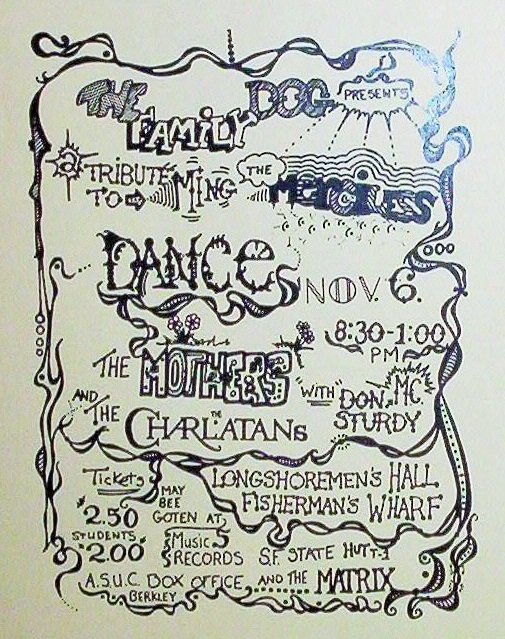 THE FAMILY DOG PRESENTS
a TRIBUTE TO MING THE MERCILESS
DANCES NOV. 6.
8:30-1:00 PM
THE MOTHERS "WITH" MC DON STURDY
AND THE THE CHARLATANS
LONGSHOREMEN'S HALL
FISHERMAN'S WHARF
Tickets
$2.50
STUDENTS
$2.00
MAY BEE GOTEN AT
MUSIC RECORDS S.F. STATE HUTT-1
A.S.U.C. BOX OFFICE AND THE MATRIX
BERKLEY